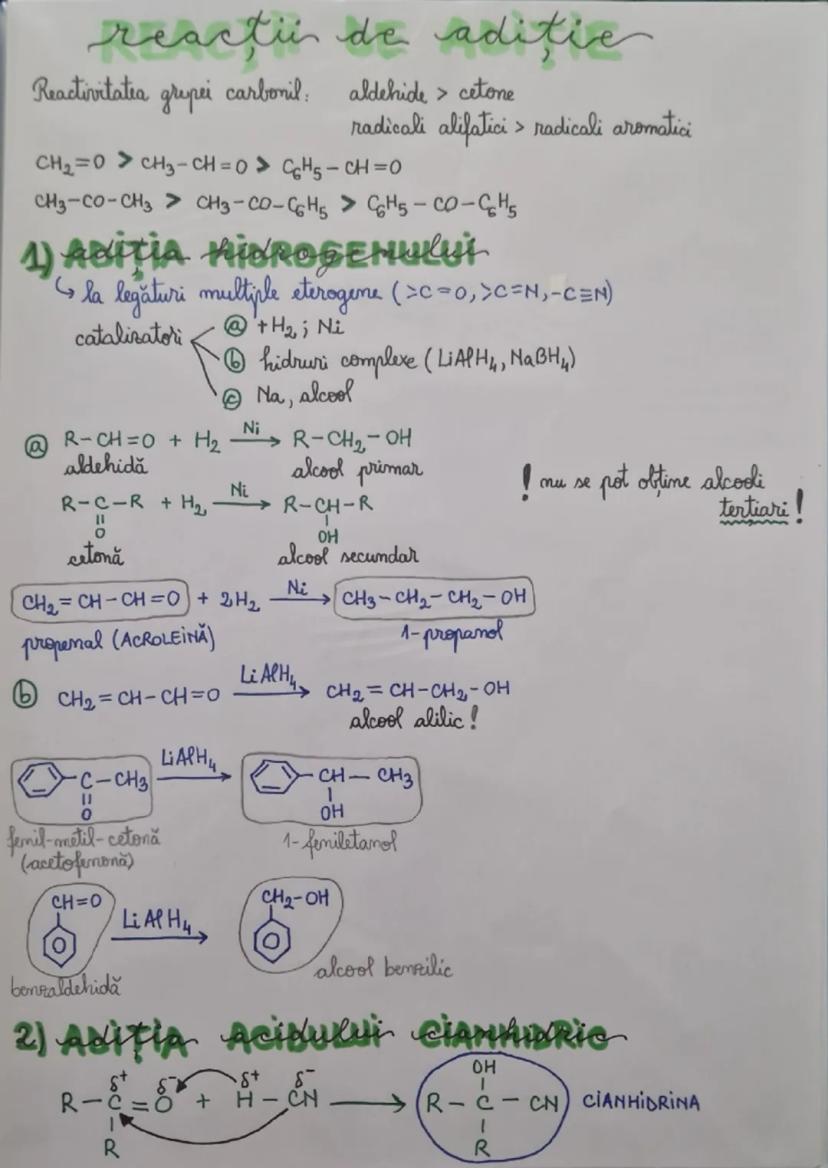 reacții de adiție
Reactivitatea grupei carbonil: aldehide > cetone
radicali alifatici > radicali aromatici
CH₂=O > CH₃-CH=O > C₆H₅-CH=O
CH₃-CO-CH₃ > CH₃-CO-C₆H₅ > C₆H₅-CO-C₆H₅
1) ADIȚIA hidrogenului
↳ la legături multiple eterogene (>C=O, >C=N, -C≡N)
catalizatori
ⓐ +H₂; Ni
ⓑ hidruri complexe (LiAlH₄, NaBH₄)
ⓒ Na, alcool
ⓐ R-CH=O + H₂ —Ni→ R-CH₂-OH
aldehidă alcool primar
! nu se pot obține alcooli
tertiari!
R-C-R + H₂ —Ni→ R-CH-R
|| |
O OH
cetonă alcool secundar
CH₂=CH-CH=O + 2H₂ —Ni→ CH₃-CH₂-CH₂-OH
propenal (ACROLEINĂ) 1-propanol
ⓑ CH₂=CH-CH=O —LiAlH₄→ CH₂=CH-CH₂-OH
alcool alilic!
C-CH₃ —LiAlH₄→ CH-CH₃
|| |
O OH
fenil-metil-cetonă 1-feniletanol
(acetofenonă)
CH=O —LiAlH₄→ CH₂-OH
benzaldehidă alcool benzilic
2) ADIȚIA acidului cianhidric
δ⁺ δ⁻ δ⁺ δ⁻ OH
R-C=O + H-CN → R-C-CN CIANHIDRINA
| |
R R